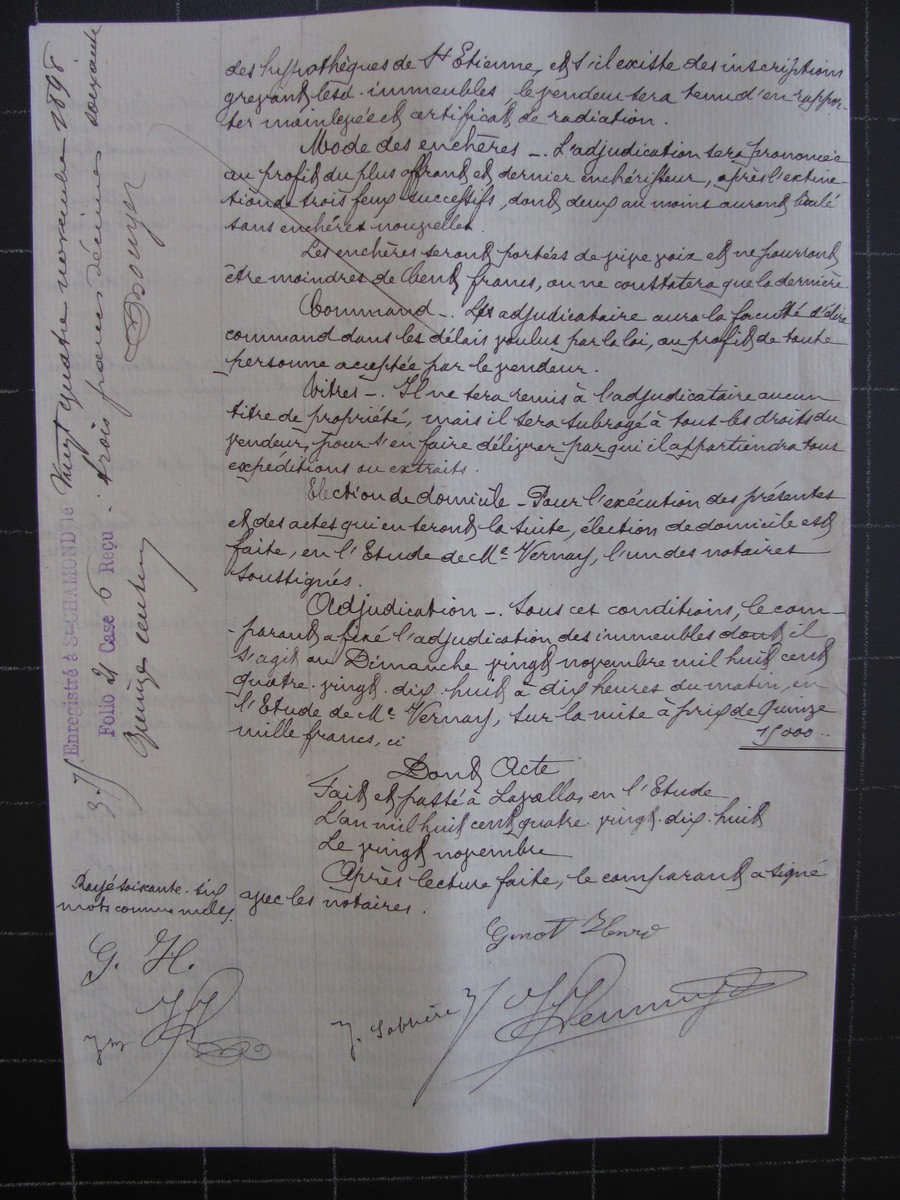 des hypothèques de St Etienne, et s'il existe des inscriptions
grevant lesd. immeubles, le vendeur sera tenu d'en rappor-
ter mainlevée et certificat de radiation.
Mode des enchères -. L'adjudication sera prononcée
au profit du plus offrant et dernier enchérisseur, après l'extinc-
tion de trois feux successifs, dont deux au moins auront brûlé
sans enchères nouvelles.
Les enchères seront portées de vive voix et ne pourront
être moindres de Cent francs, on ne constatera que la dernière.
Command -. adjudicataire aura la faculté d'élire
command dans les délais voulus par la loi, au profit de toute
personne acceptée par le vendeur.
Titres -. Il ne sera remis à l'adjudicataire aucun
titre de propriété, mais il sera subrogé à tous les droits du
vendeur, pour s'en faire délivrer par qui il appartiendra tous
expéditions ou extraits.
Election de domicile - Pour l'exécution des présentes
et des actes qui en seront la suite, élection de domicile est
faite, en l'Etude de Me Vernay, l'un des notaires
soussignés.
Adjudication -. Sous ces conditions, le com-
-parant a fixé l'adjudication des immeubles dont il
s'agit au Dimanche vingt novembre mil huit cent
quatre-vingt-dix-huit à dix heures du matin, en
l'Etude de Me Vernay, sur la mise à prix de Quinze
mille francs, ci 15 000 ..
Dont Acte
Fait et passé à Lavalla, en l'Etude
L'an mil huit cent quatre-vingt-dix-huit
Le vingt novembre
Après lecture faite, le comparant a signé
avec les notaires.
Rayé soixante-six
mots comme nuls.
G. H.
Ginot Henri
Enregistré à St-CHAMOND le Vingt quatre novembre 1898
Folio 21 Case 6 Reçu : trois francs décimes soixante
quinze centimes